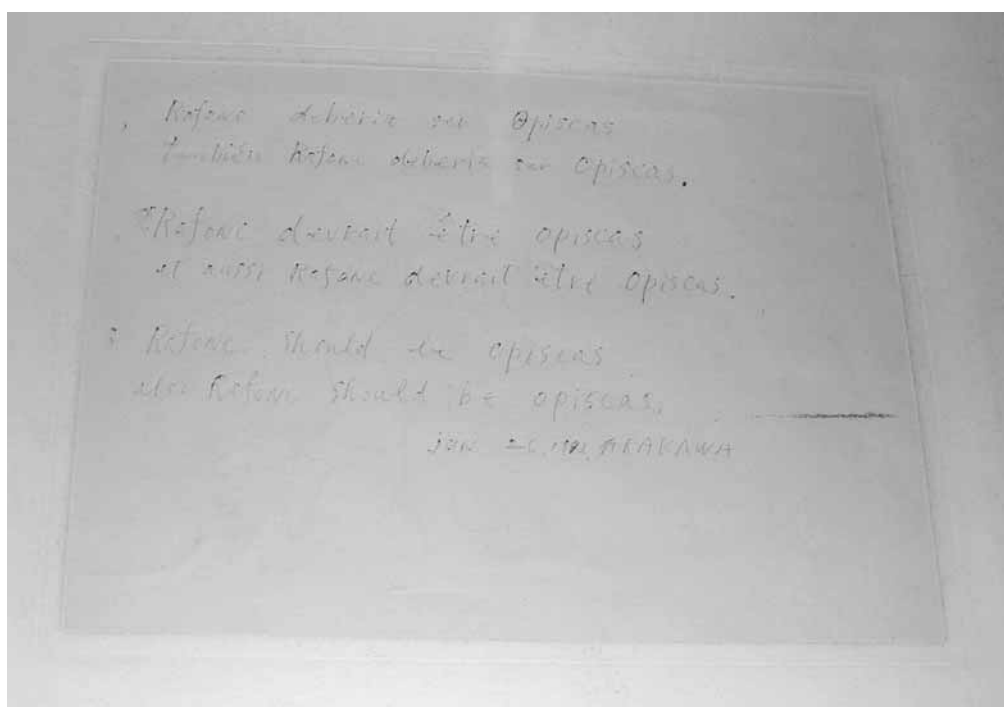 Rafone debería ser Opiscas
también Rafone debería ser Opiscas.
Rafone devrait être opiscas
et aussi Rafone devrait être opiscas.
Rafone should be opiscas
also Rafone should be opiscas.
jun ARAKAWA